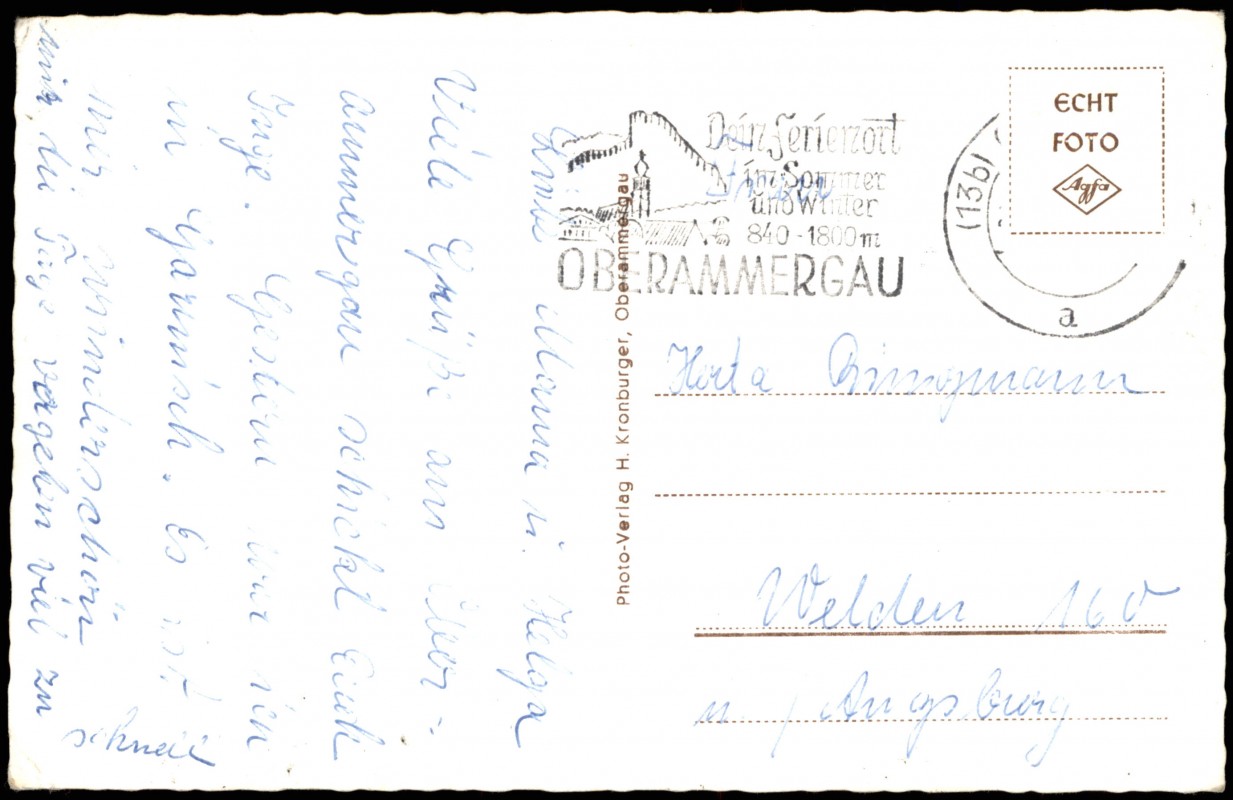 Liebe Mama u. Helga
Viele Grüße aus Ober-
ammergau schickt Euch
Inge. Gestern war ich
in Garmisch. Es ist
mir wunderschön
nur die Tage vergehn viel zu
schnell
Dein Ferienort
im Sommer
und Winter
840-1800m
OBERAMMERGAU
(13b)
a
ECHT
FOTO
Agfa
Photo-Verlag H. Kronburger, Oberammergau
Herta Bringmann
Welden 160
n. / Augsburg